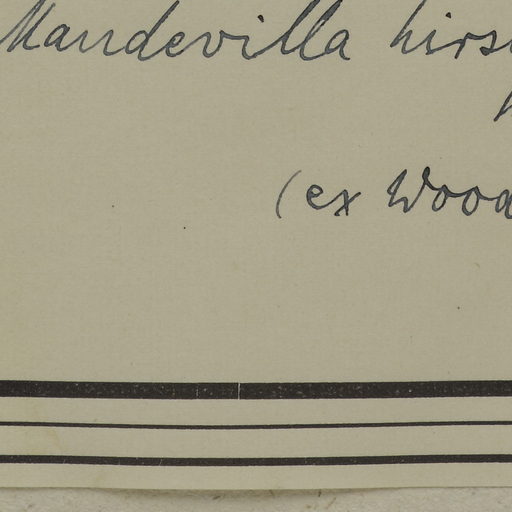 Mandevilla hirs
(ex Wood